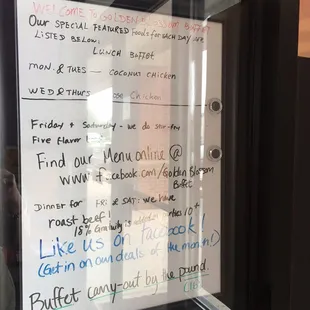 WELCOME TO GOLDEN BLOSSOM BUFFET
Our SPECIAL FEATURED Foods for EACH DAY ARE
LISTED BELOW:
LUNCH BUFFET
MON. & TUES — COCONUT CHICKEN
WED & THURS Chicken
Friday + Saturday - we do stir-fry
Five flavor
Find our Menu online @
www.facebook.com/Golden Blossom
Buffet
Dinner for Fri & Sat: we have
roast beef!
18% Gratuity is added parties 10+
Like us on facebook!
(Get in on our deals of the month!)
Buffet carry-out by the pound.